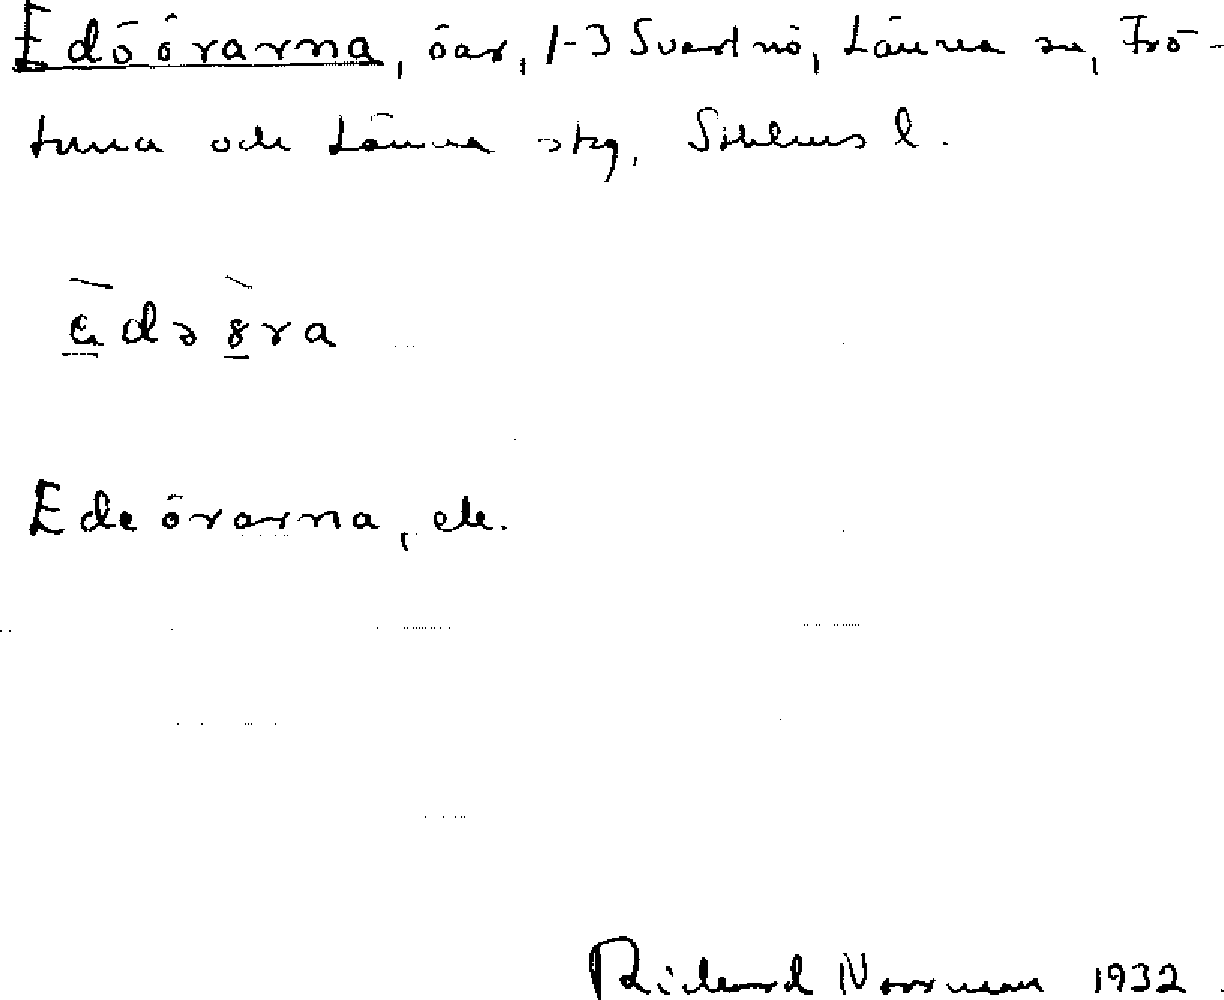 Edöörarna, öar, 1-3 Svartnö, Länna sn, Frö-
tuna och Länna skg, Sthlms l.
e̱də 8̱ra
Edeörarna, ek.
Richard Norrman 1932